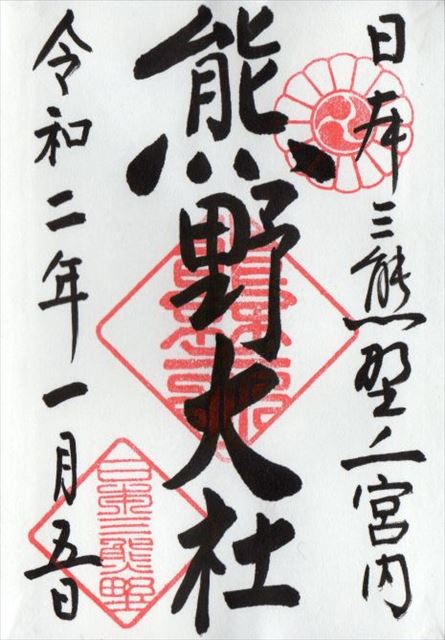 日本三熊野之宮内
熊野大社
令和二年一月五日
日本三熊野